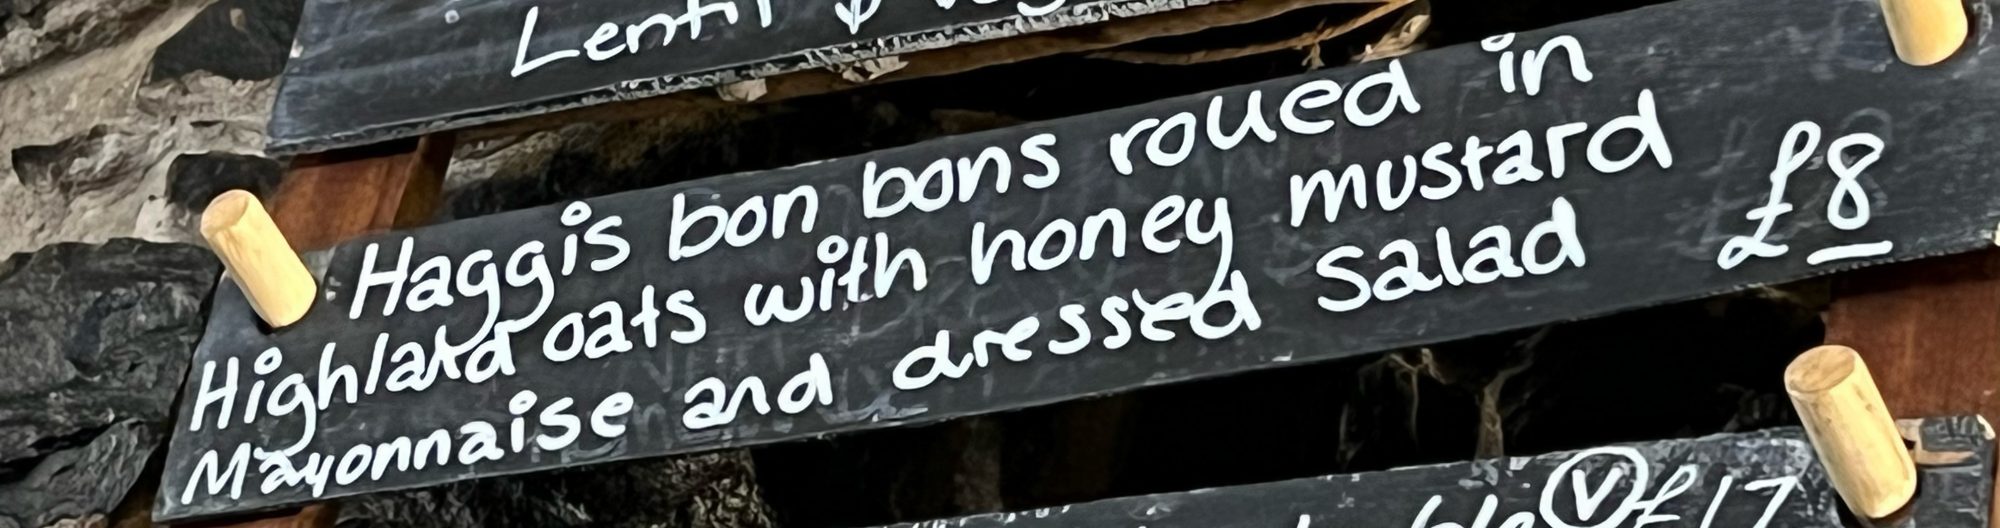 Lentil &
Haggis bon bons rolled in
Highland oats with honey mustard
Mayonnaise and dressed Salad £8
Ⓥ £17